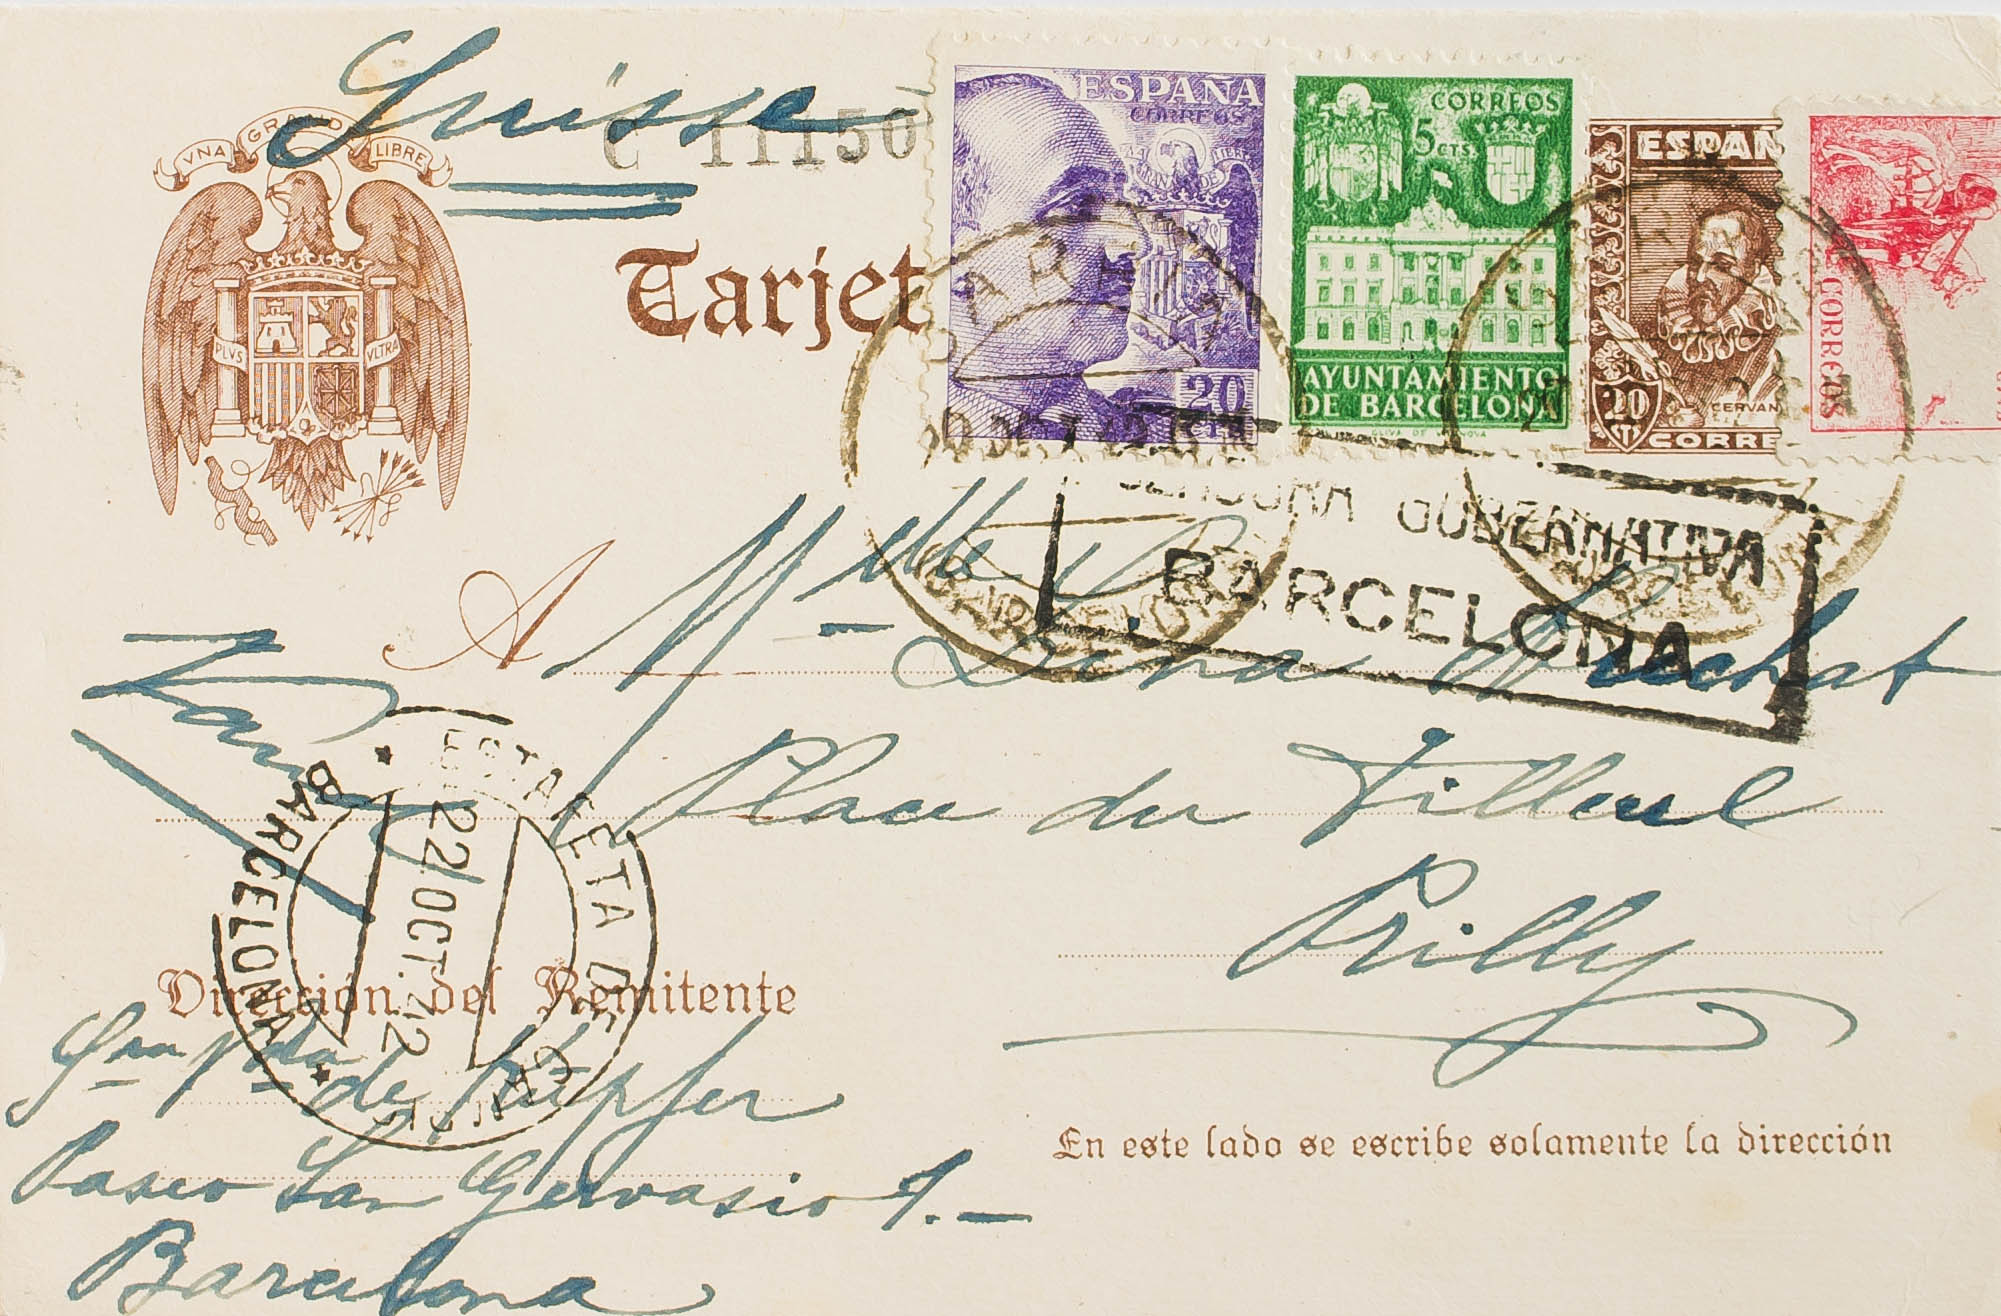 Suisse
VNA GRANDE LIBRE
C 11150
PLVS VLTRA
Tarjet
ESPAÑA
CORREOS
20
CTS
CORREOS
5
CTS
AYUNTAMIENTO
DE BARCELONA
ESPAÑ
20
CTS
CERVAN
CORRE
CORREOS
CENSURA GUBERNATIVA
BARCELONA
A Mlle Dina Ruchat
Place du Tilleul
Prilly
ESTAFETA DE CAMBIO
22 OCT. 42
BARCELONA
Dirección del Remitente
de Küpfer
Paseo San Gervasio 1.—
Barcelona
En este lado se escribe solamente la dirección